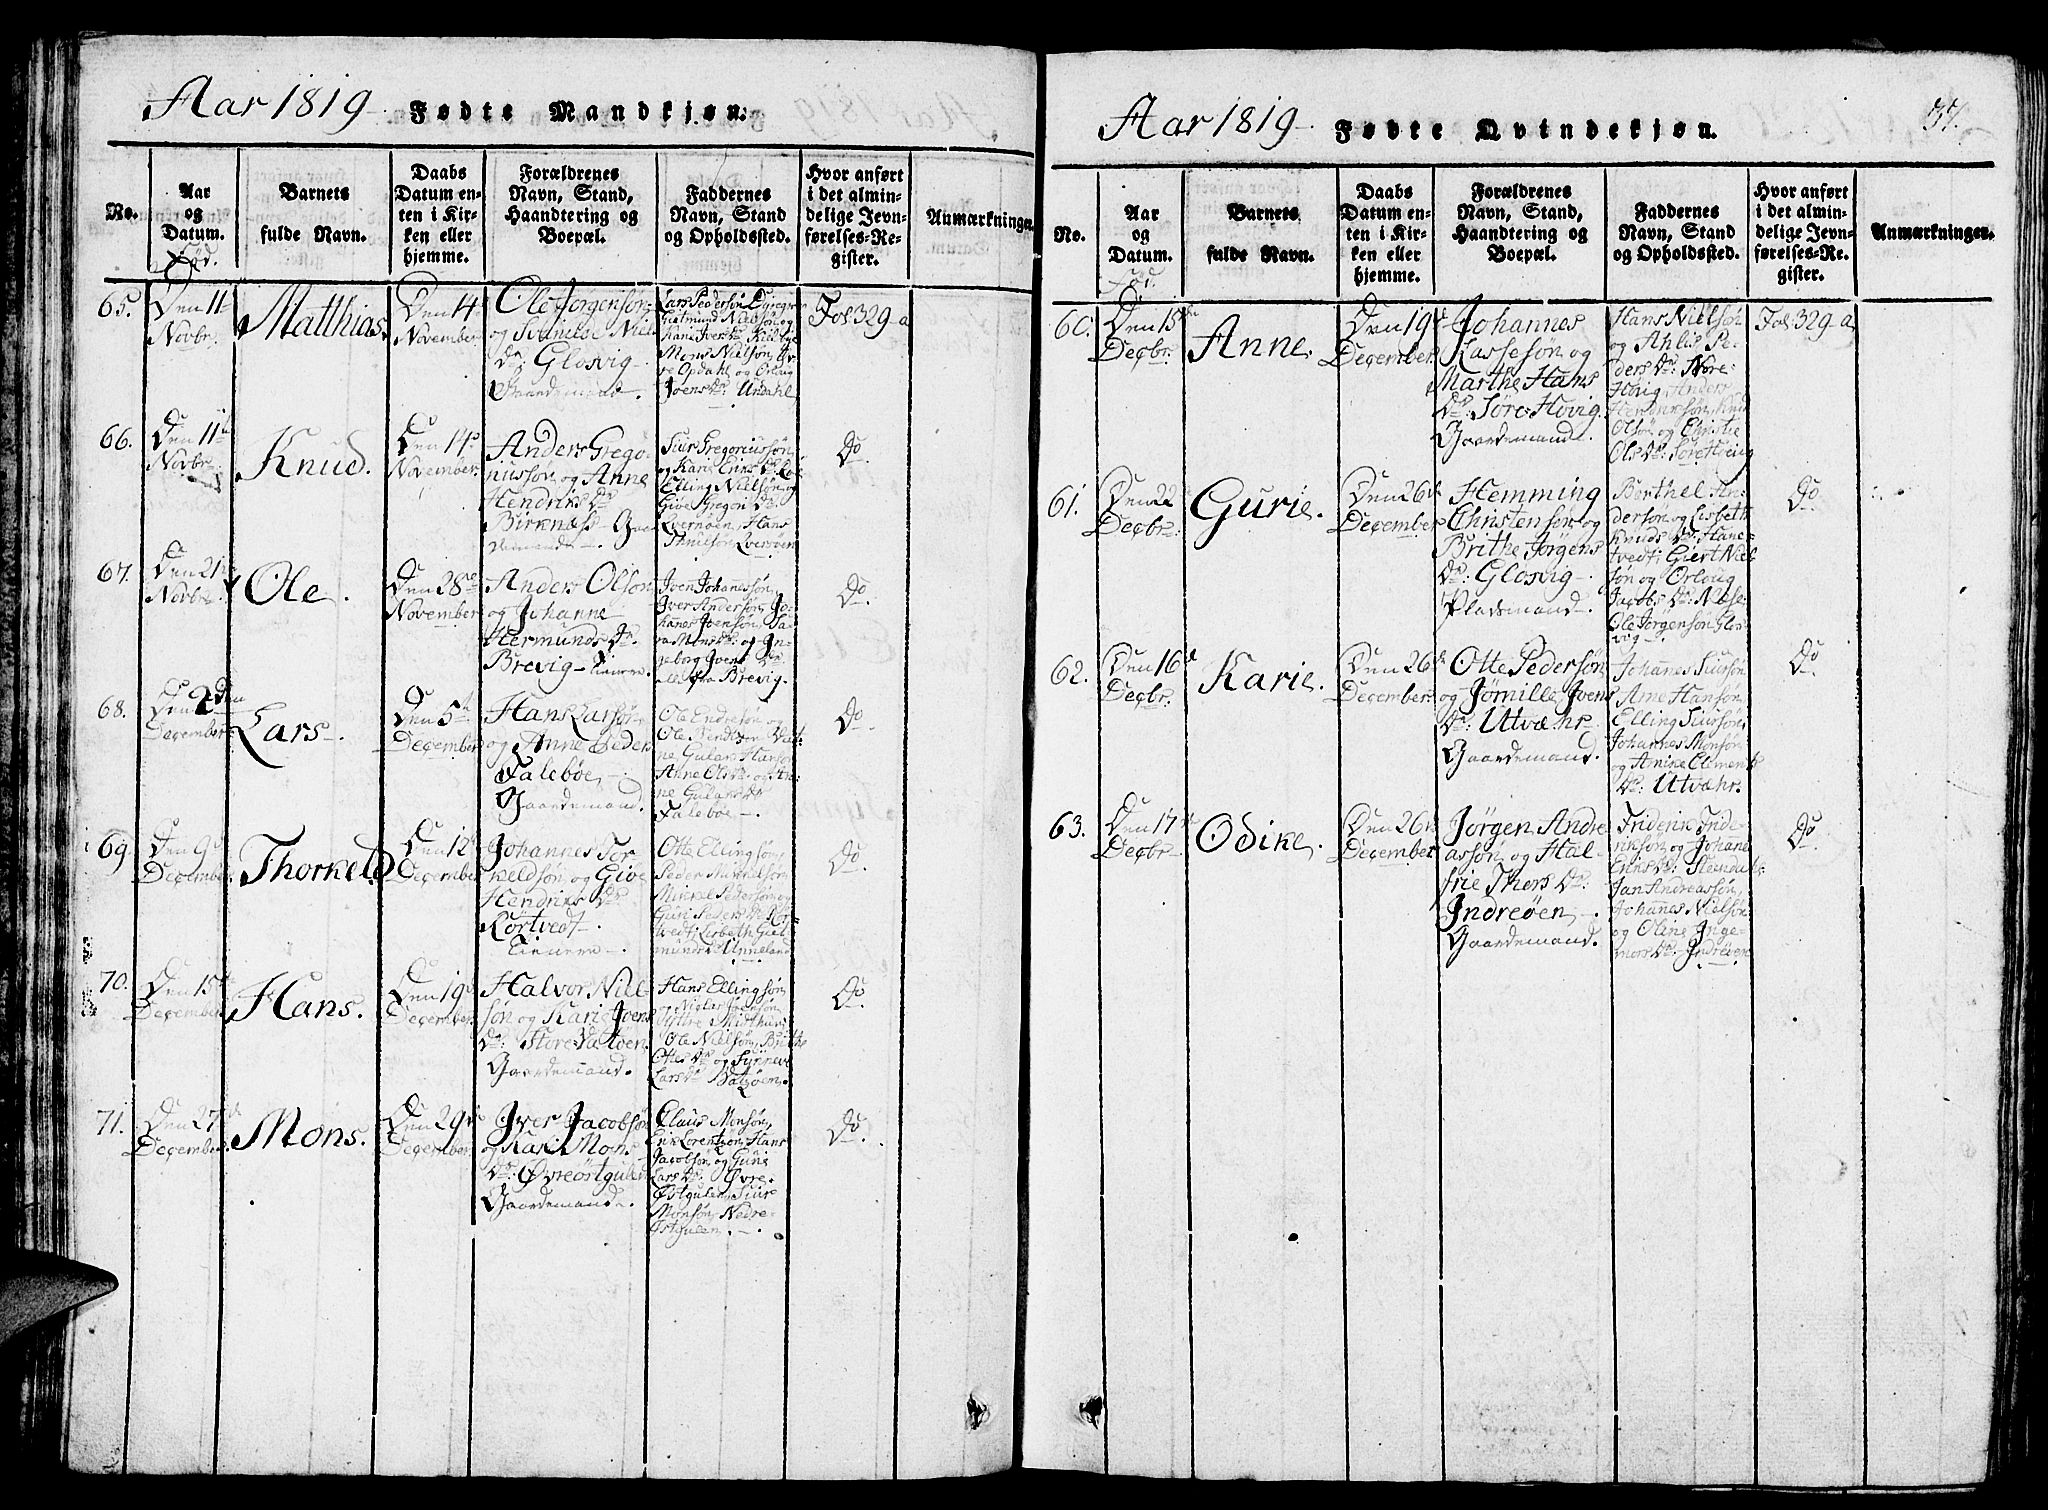 Aar 1819 Fødte Mandkjøn.
No.
Aar
og
Datum.
Fød.
Barnets
fulde Navn.
Daabs
Datum en-
ten i Kir-
ken eller
hjemme.
Forældrenes
Navn, Stand,
Haandtering og
Boepæl.
Faddernes
Navn, Stand
og Opholdssted.
Hvor anført
i det almin-
delige Jevn-
førelses-Re-
gister.
Anmærkninger.
65.
Den 11
Novbr.
Matthias.
Den 14
November
Ole Jørgensøn
og Synnese Niels
Dr. Glosvig
Gaardemand.
Lars Pedersøn
Mons Nielsøn Øv
re Opdahl og Orloug
Joens Dr: Updahl
Fol 329 a
66.
Den 11te
Novbr
Knud.
Den 14de
November.
Anders Grego
riussøn og Anne
Hendriks Dr
Birknæs Gaar
demand.
Siur Gregoriussøn
og Kari Eriks Dr
Elling Nielsøn og
Give Gregori Dr.
Hans
Do
67.
Den 21
Novbr
Ole.
Den 28de
November
Anders Olsøn
og Johanne
Hermunds Dr.
Brevig
Joen Johanessøn,
Iver Andersøn, Jo-
hanes Joensøn, Sa-
ra Mons Dr. og In-
geborg Ivers Dr
alle fra Brevig.
Do.
68.
Den 2den
December
Lars.
Den 5te
December
Hans Larsøn
og Anne Peders
Falebøe
Gaardemand.
Ole Endresøn og
Anne Ols Dr. og An-
ne Gulaks Dr
Falebøe
Do
69
Den 9de
December.
Thorkeld
Den 12te
December
Johannes Tor
keldsøn og Give
Hendriks Dr
Kortvedt
Otte Ellingsøn,
Peder Mikkelsøn
Mikkel Pedersøn og
Guri Peders Dr Kor-
tvedt, Lisbeth Giel
munds Dr Unneland
Do.
70.
Den 15de
December.
Hans.
Den 19de
December.
Halvor Niel-
søn og Kari Joens
Dr: Store Batøen
Gaardemand.
Hans Ellingsøn
og Niels Joensøn
Ole Nielsøn, Brithe
Ottes Dr og Synneve
Lars Dr Batzøen.
Do
71.
Den 27de
December.
Mons.
Den 29de
December.
Iver Jacobsøn
og Kari Mons
Dr: Øvreøstgulen
Gaardemand.
Claus Monsøn,
Erik Lorentsøn, Hans
Jacobsøn og Guri
Lars Dr: Øvre-
Østgulen, Siur
Monsøn, Nedre-
Østgulen.
Do.
Aar 1819 Fødte Qvindekjøn.
37.
No.
Aar
og
Datum.
Fød.
Barnets
fulde Navn.
Daabs
Datum en-
ten i Kir-
ken eller
hjemme.
Forældrenes
Navn, Stand,
Haandtering og
Boepæl.
Faddernes
Navn, Stand
og Opholdssted.
Hvor anført
i det almin-
delige Jevn-
førelses-Re-
gister.
Anmærkninger.
60.
Den 15de
Decbr.
Anne.
Den 19de
December.
Johannes
Lassesøn og
Marthe Hans
Dr: Søre Hovig
Gaardemand.
Hans Nielsøn
og Ahlis Pe-
ders Dr: Nore-
Hovig, Anders
Hendriksøn, Knud
Olsøn og Christie
Ols Dr: Søre Hovig
Fol 329 a
61.
Den 22
Decbr:
Gurie.
Den 26de
December
Hemming
Christensøn og
Brithe Jørgens
Dr: Glosvig
Pladsmand.
Berthel An-
dersøn og Lisbeth
Knuds Dr. Hane-
tvedt; Giert Niel
søn og Orloug
Jacobs Dr: Næse.
Ole Jørgensøn Glos
vig
Do
62.
Den 16de
Decbr.
Karie.
Den 26de
December.
Otte Pedersøn
og Jørnille Joens
Dr: Utvæhr
Gaardemand.
Johanes Siursøn
Arne Hansøn
Elling Siursøn,
Johannes Monsøn
og Anike Clements
Dr: Utvæhr.
Do
63.
Den 17de
Decbr
Odike.
Den 26de
December
Jørgen Andre
assøn og Hal-
frie Thors Dr:
Indreøen
Gaardemand.
Friderik Fride-
riksøn og Johane
Eriks Dr: Steindal
Jan Andreassøn,
Johannes Nielsøn
og Oline Inge-
mars Dr: Indreøen
Do.